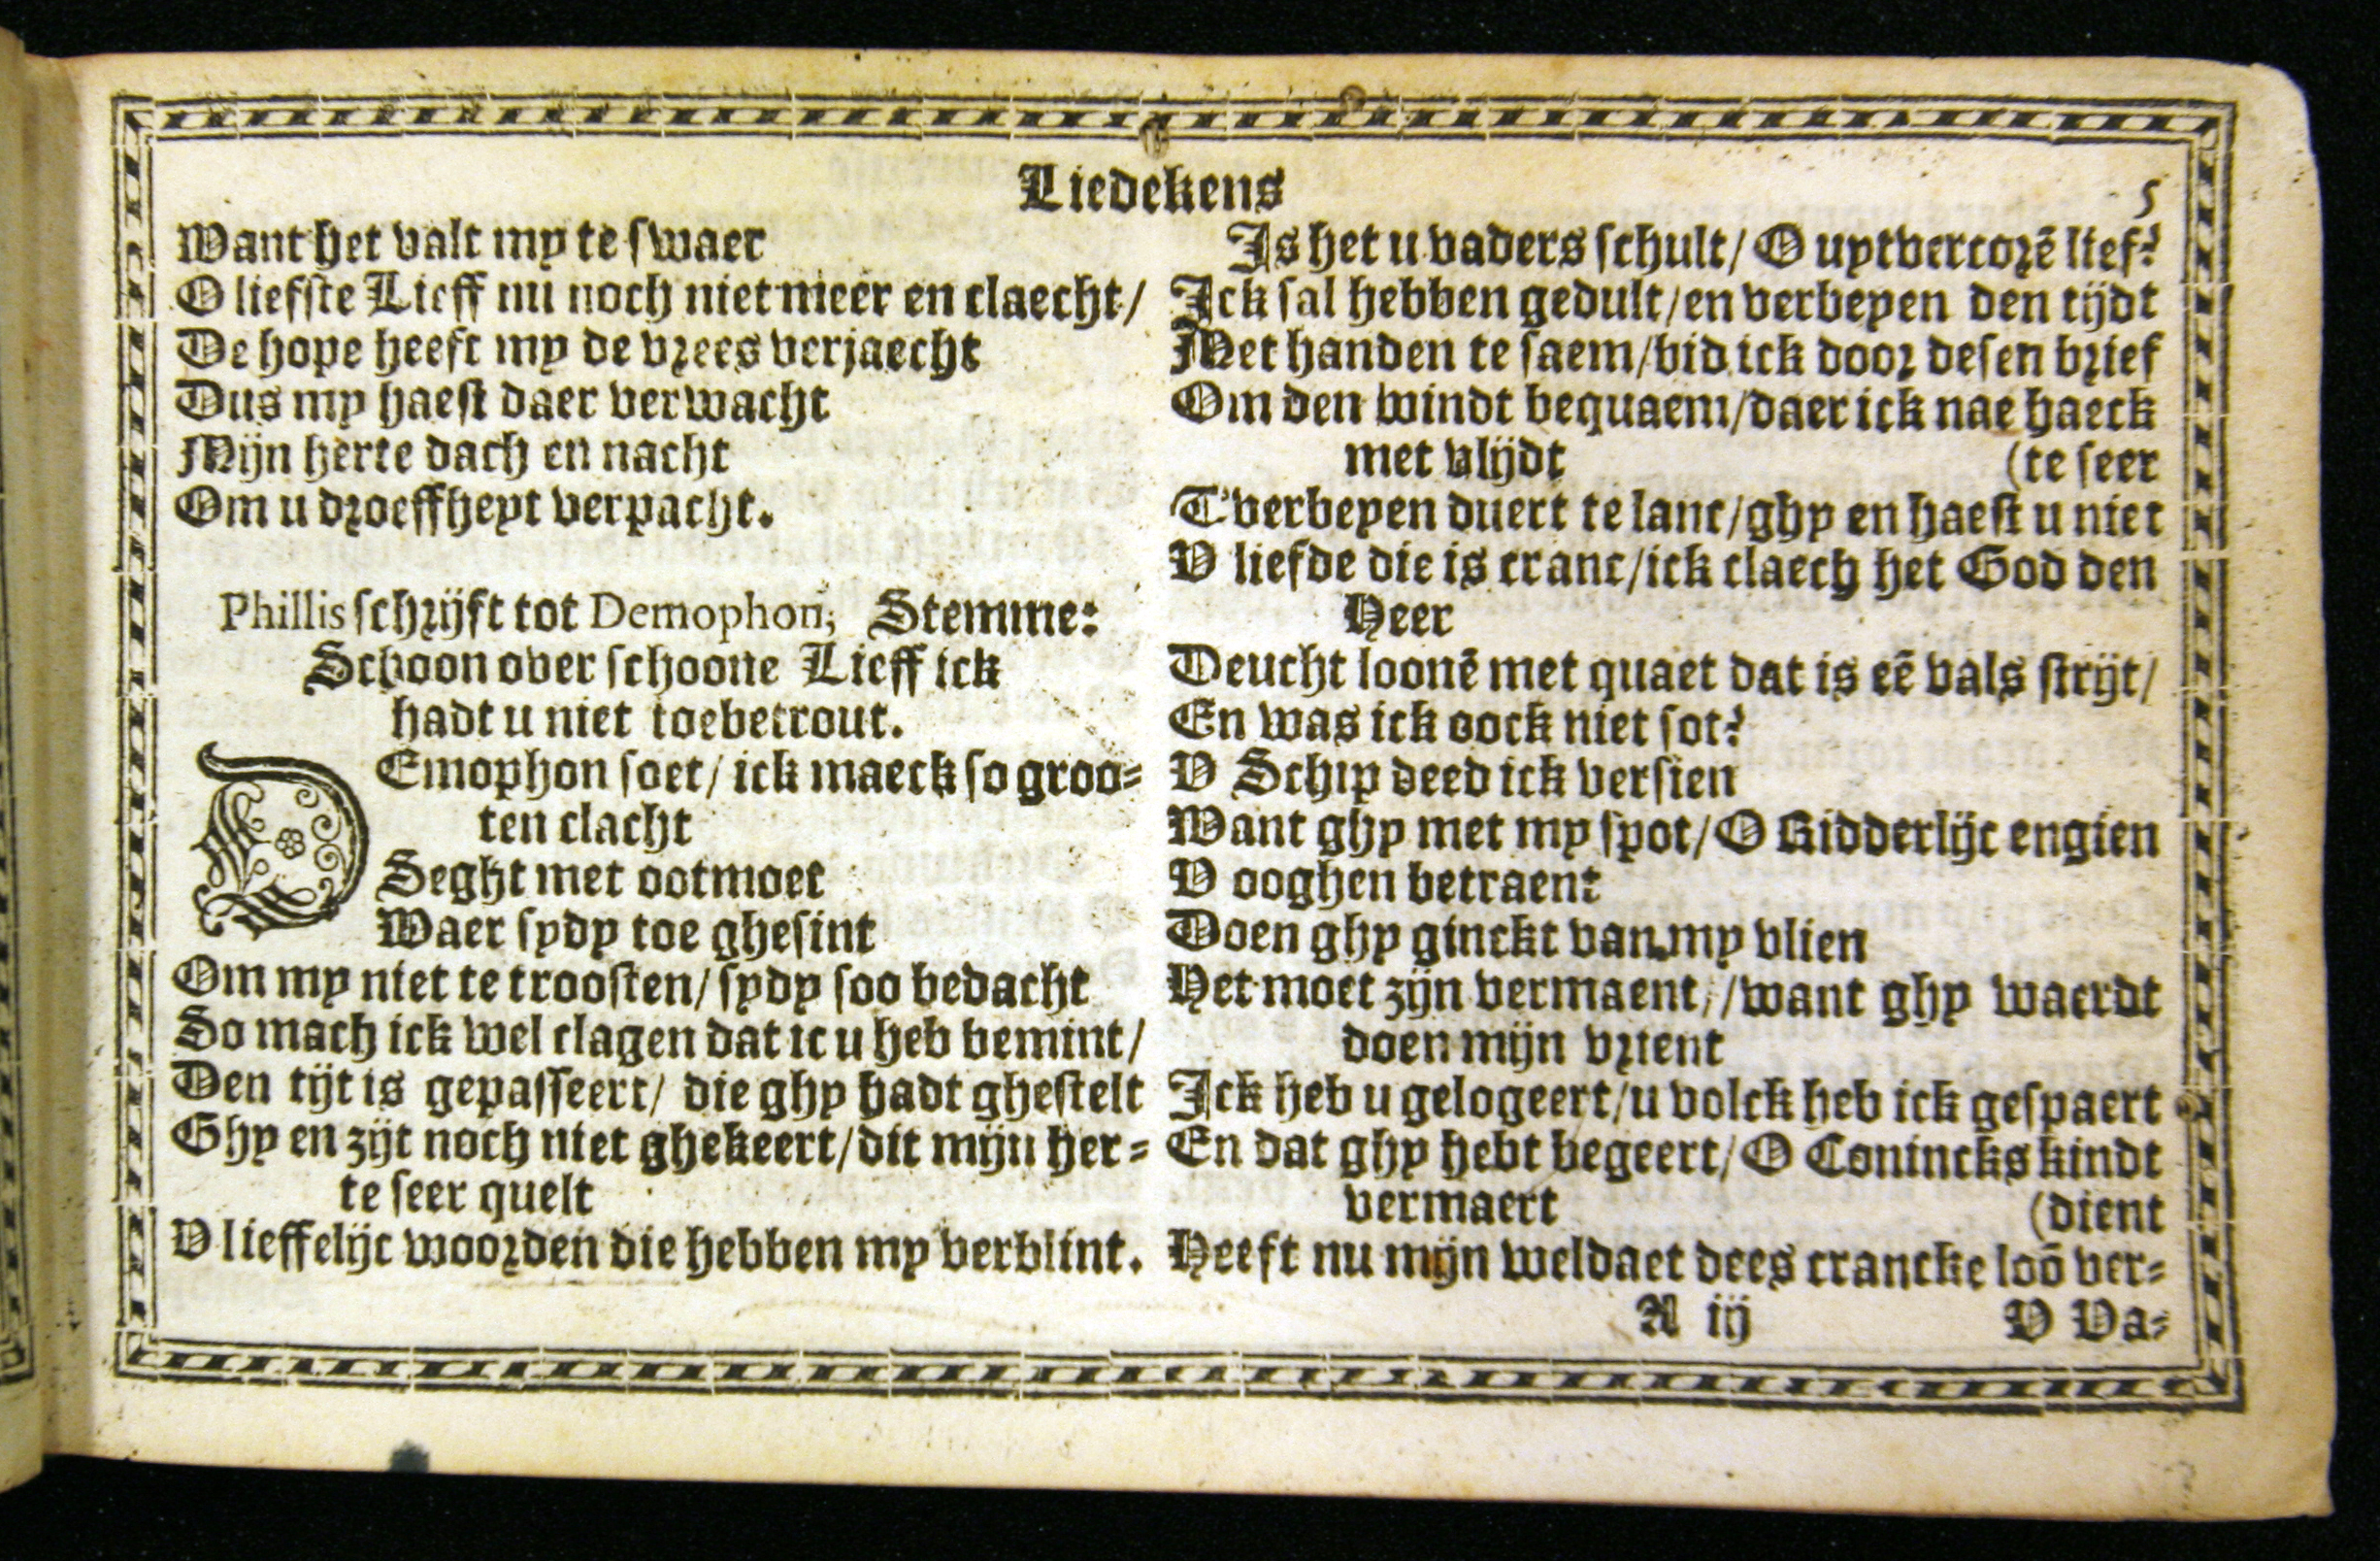 Liedekens
5
Want het valt my te swaer
O liefste Lieff nu noch niet meer en claecht/
De hope heeft my de vrees verjaecht
Dus my haest daer verwacht
Mijn herte dach en nacht
Om u droeffheyt verpacht.
Phillis schrijft tot Demophon, Stemme:
Schoon over schoone Lieff ick
hadt u niet toebetrout.
DEmophon soet/ ick maeck so groo=
ten clacht
Seght met ootmoet
Waer sydy toe ghesint
Om my niet te troosten/ sydy soo bedacht
So mach ick wel clagen dat ic u heb bemint/
Den tijt is gepasseert/ die ghy hadt ghestelt
Ghy en zijt noch niet ghekeert/dit mijn her=
te seer quelt
V lieffelijc woorden die hebben my verblint.
Is het u vaders schult/ O uytvercorē lief?
Ick sal hebben gedult/en verbeyen den tijdt
Met handen te saem/bid ick door desen brief
Om den windt bequaem/daer ick nae haeck
met vlijdt (te seer
T'verbeyen duert te lanc/ghy en haest u niet
V liefde die is cranc/ick claech het God den
Heer
Deucht loonē met quaet dat is eē vals strijt/
En was ick oock niet sot?
V Schip deed ick versien
Want ghy met my spot/O Ridderlijc engien
V ooghen betraent
Doen ghy ginckt van my vlien
Het moet zijn vermaent,/want ghy waerdt
doen mijn vrient
Ick heb u gelogeert/u volck heb ick gespaert
En dat ghy hebt begeert/O Conincks kindt
vermaert (dient
Heeft nu mijn weldaet dees crancke loō ver=
A ij V Va=